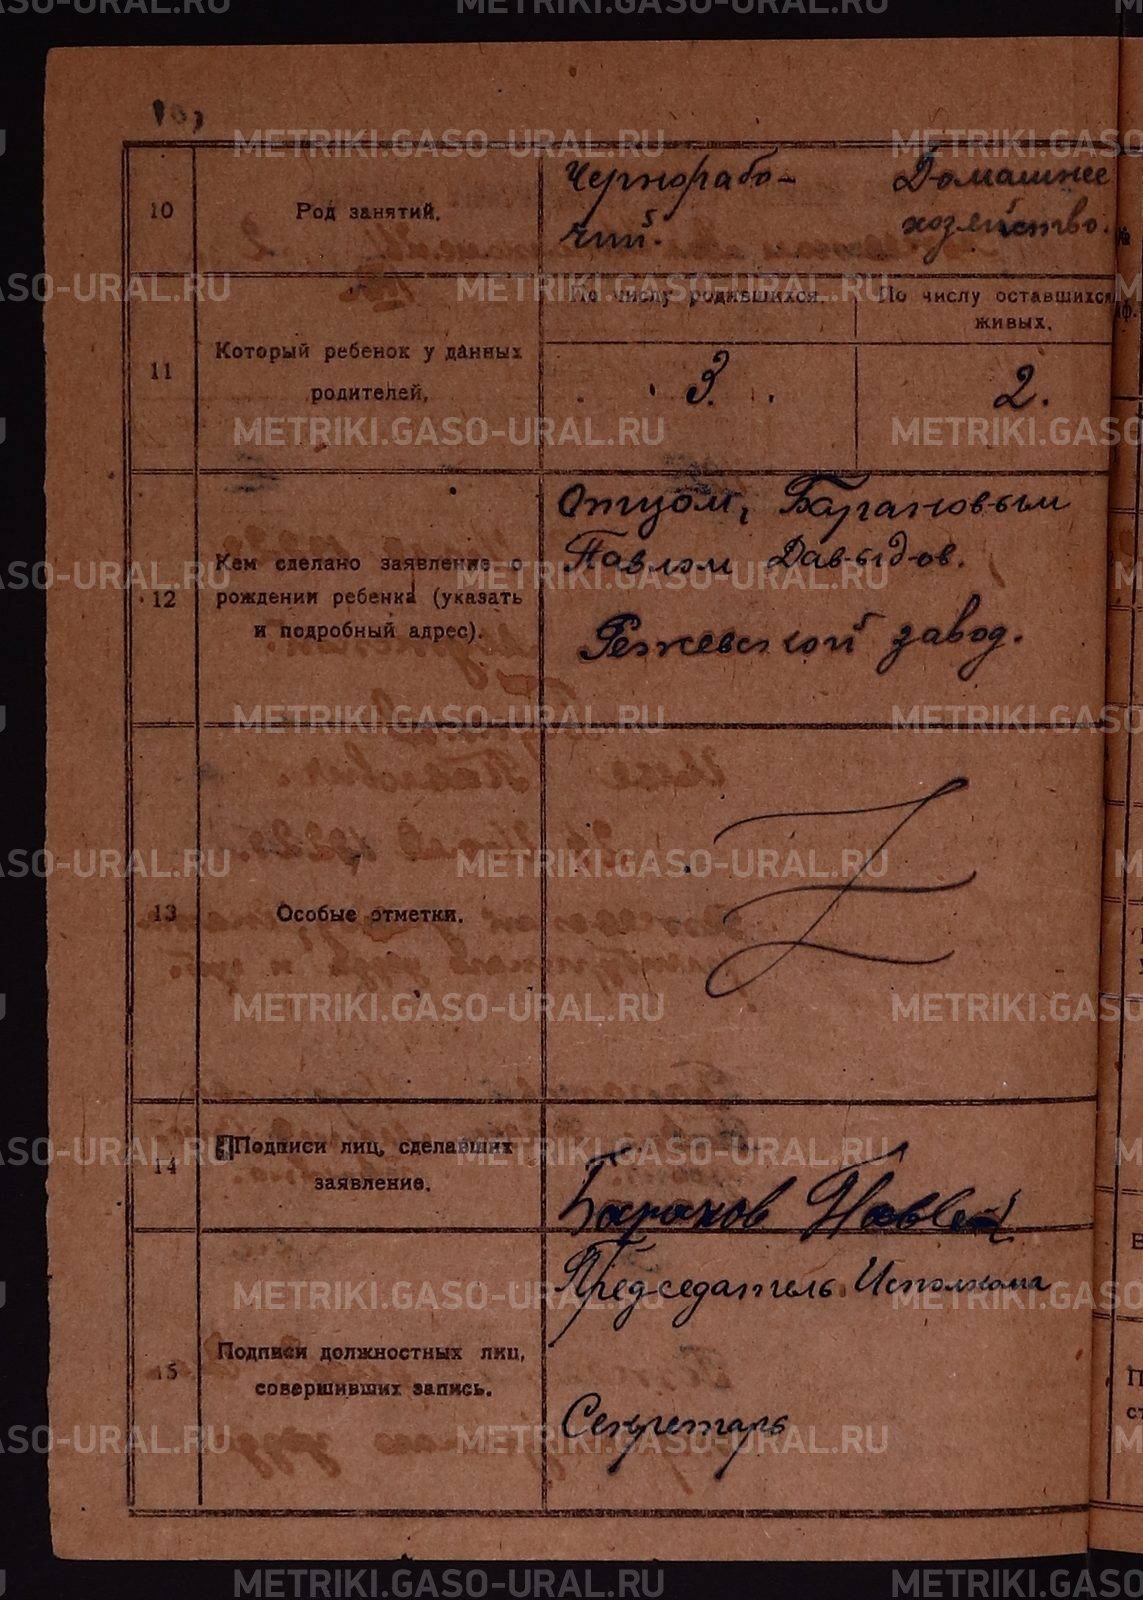 10
Род занятий.
Чернорабо-
чий.
Домашнее
хозяйство.
11
Который ребенок у данных
родителей.
По числу родившихся.
По числу оставшихся
живых.
3.
2.
12
Кем сделано заявление о
рождении ребенка (указать
и подробный адрес).
Отцом, Барановым
Павлом Давыдов.
Режевской завод.
13
Особые отметки.
14
Подписи лиц, сделавших
заявление.
Баранов Павел
15
Подписи должностных лиц,
совершивших запись.
Председатель Исполкома
Секретарь
METRIKI.GASO-URAL.RU